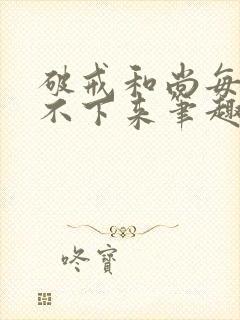 破戒和尚每
不下来笔趣
咚寶